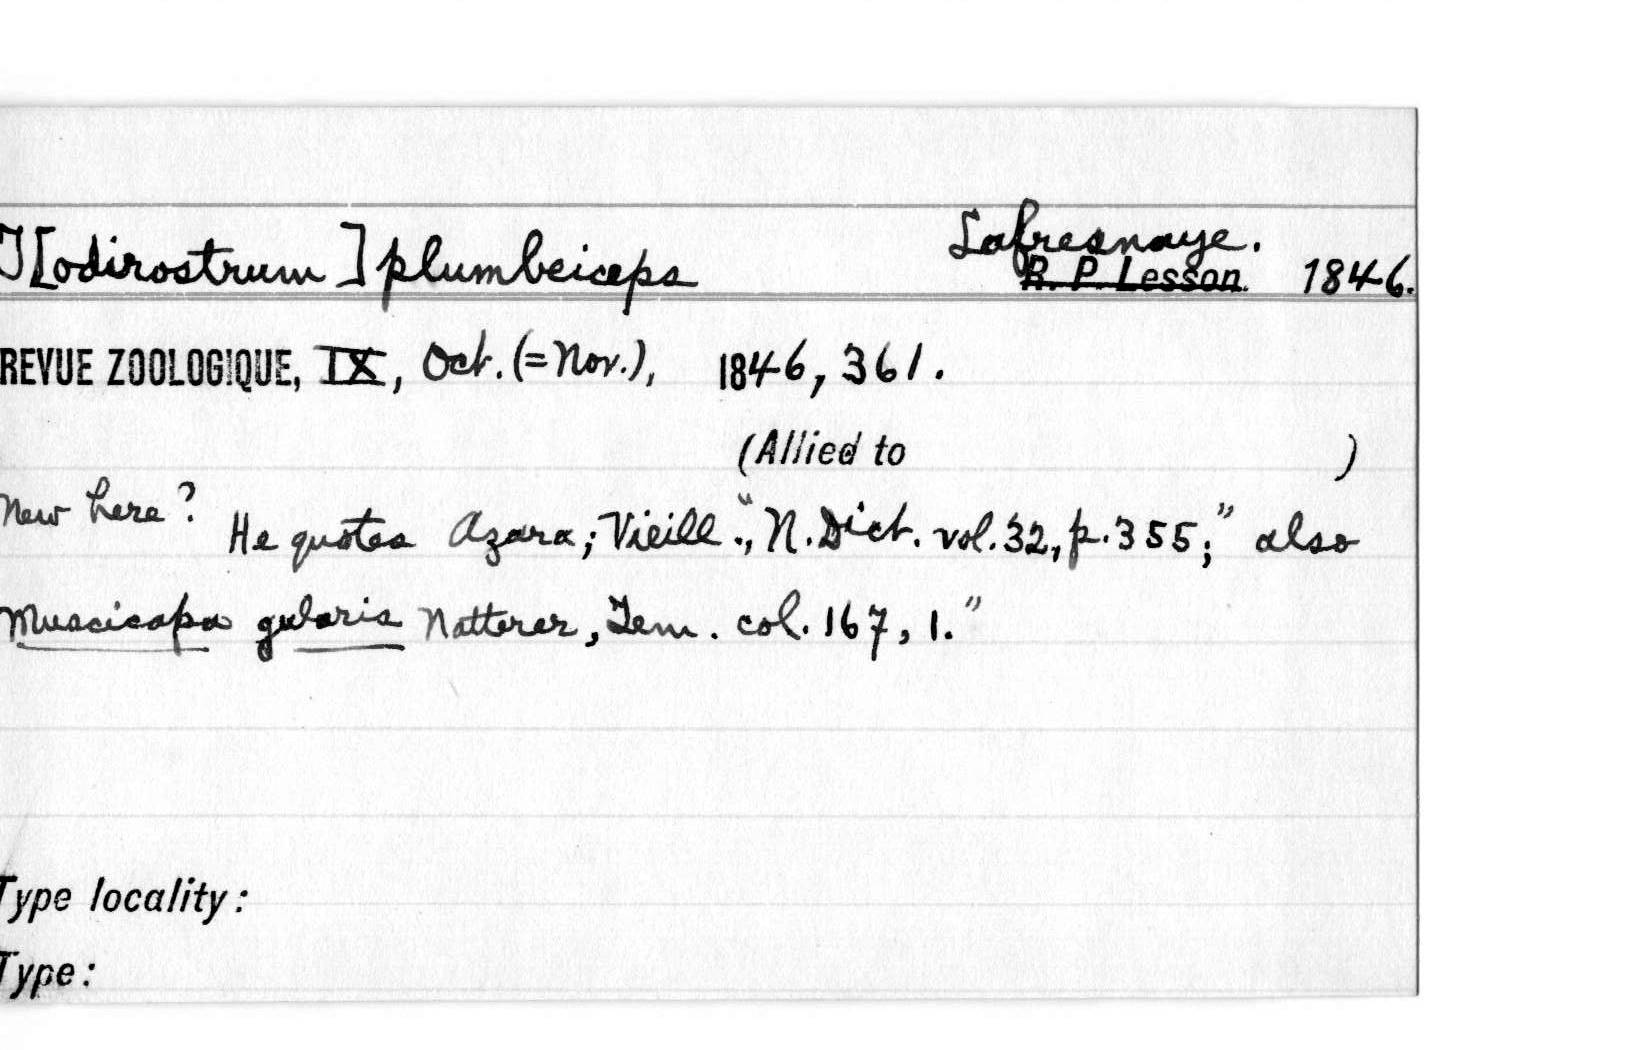 T[odirostrum] plumbeiceps Lafresnaye.
R. P. Lesson 1846.
REVUE ZOOLOGIQUE, IX, Oct. (=Nov.), 1846, 361.
(Allied to )
New here? He quotes Azara; Vieill., "N. Dict. vol. 32, p. 355;" also
Muscicapa gularis Natterer, Tem. col. 167, 1."
Type locality:
Type: